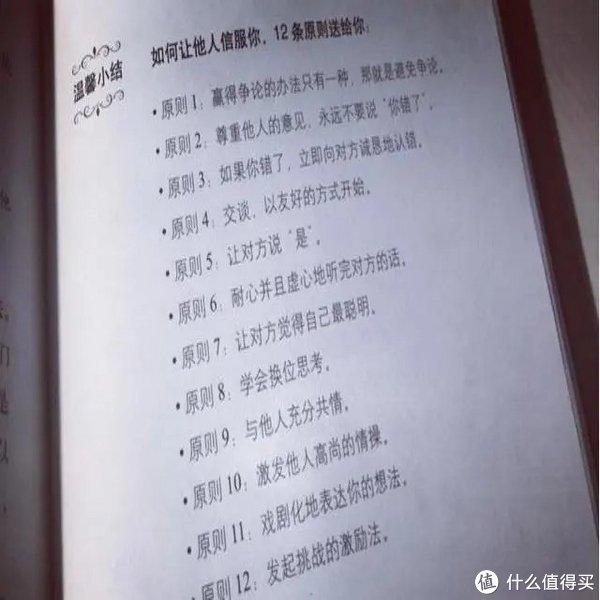 温馨小结
如何让他人信服你，12条原则送给你：
·原则1：赢得争论的办法只有一种，那就是避免争论。
·原则2：尊重他人的意见，永远不要说“你错了”。
·原则3：如果你错了，立即向对方诚恳地认错。
·原则4：交谈，以友好的方式开始。
·原则5：让对方说“是”。
·原则6：耐心并且虚心地听完对方的话。
·原则7：让对方觉得自己最聪明。
·原则8：学会换位思考。
·原则9：与他人充分共情。
·原则10：激发他人高尚的情操。
·原则11：戏剧化地表达你的想法。
·原则12：发起挑战的激励法。
他
们
是
以
值 什么值得买